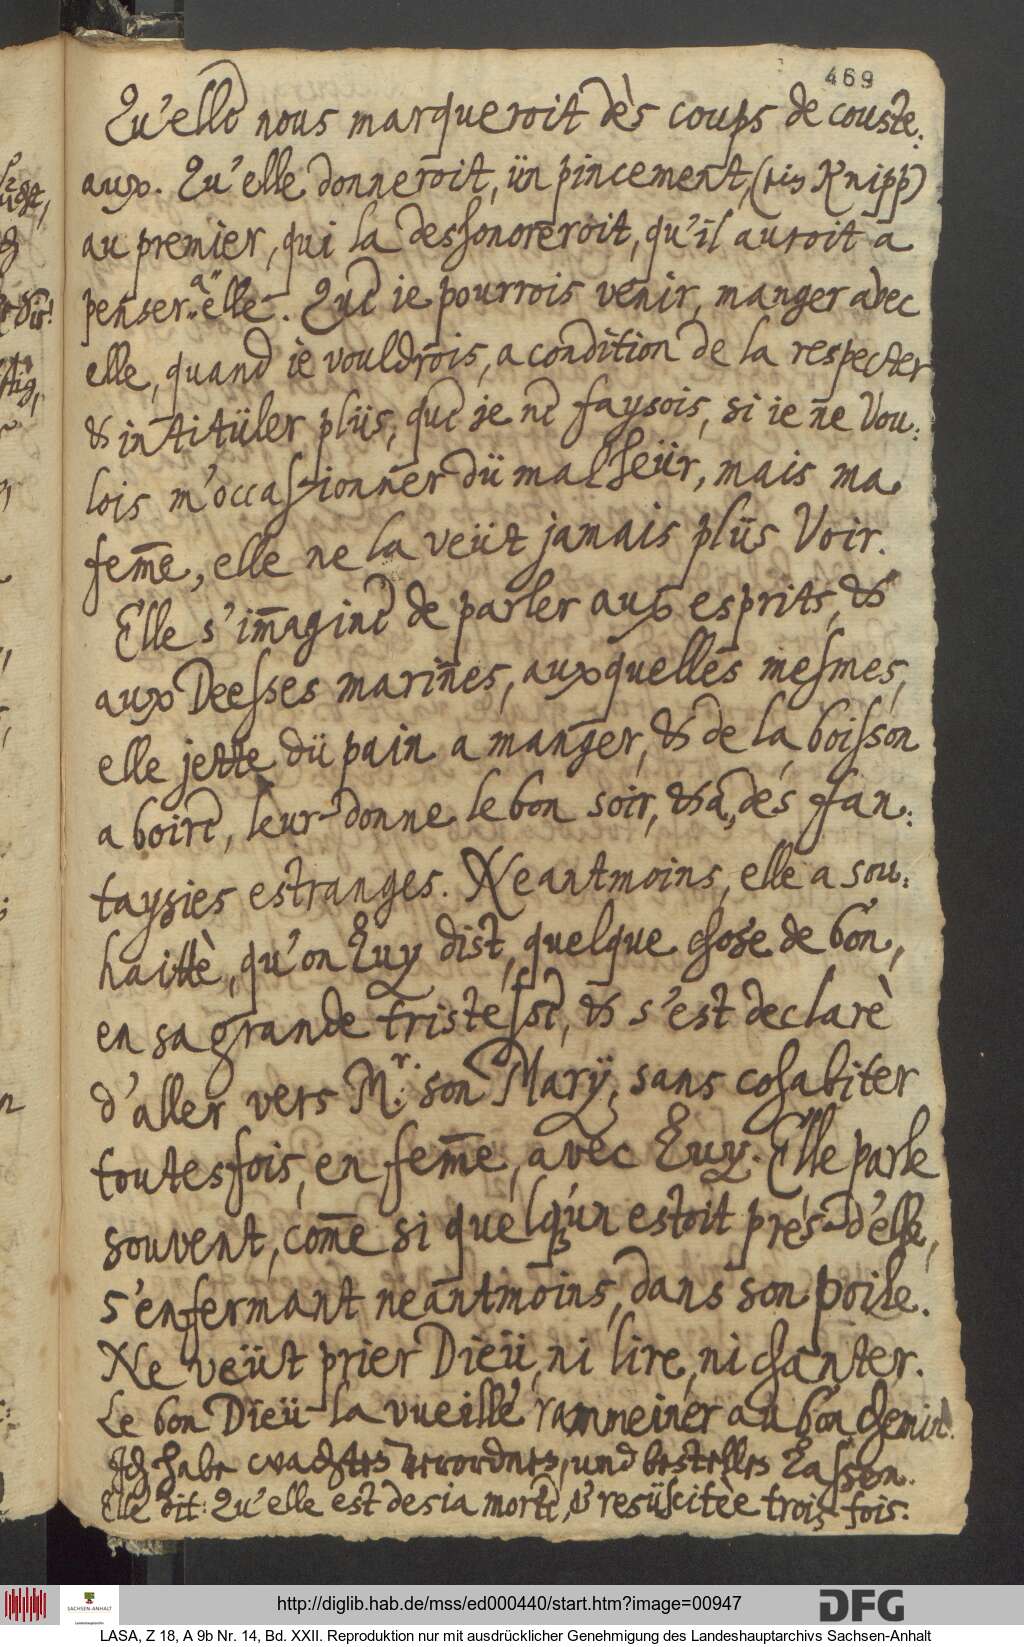 469
Qu'elle nous marqueroit dès coups de couste:
aux. Qu'elle donneroit, ün pincement, (ein Knipp)
au premier, qui la deshonoreroit, qu'il auroit a
penser a" elle. Que ie pourrois venir, manger avec
elle, quand ie vouldrois, a condition de la respecter
& intitüler plüs, que je ne faysois, si ie ne vou:
lois m'occasionner dü malheür, mais ma
fem̄e, elle ne la veüt jamais plüs Voir.
Elle s'im̄agine de parler aux esprits, &
aux Deesses marines, auxquelles mesmes,
elle jette dü pain a manger, & de la boisson
a boire, leur donne le bon soir, & a, des fan:
taysies estranges. Neantmoins, elle a sou:
haittè, qu'on Luy dist, quelque chose de bon,
en sa grande tristesse, & s'est declarè
d'aller vers Mr. son Marÿ, sans cohabiter
toutesfois, en fem̄e, avec Luy. Elle parle
souvent, com̄e si quelqu'ün estoit prés d'elle,
s'enfermant neantmoins, dans son poile.
Ne veüt prier Dieü, ni lire, ni chanter.
Le bon Dieü la vueille rammeiner au bon chemin.
Ich habe wachten verordnen, und bestellen Laßen.
Elle dit: Qu'elle est desia morte, & resüscitèe trois fois.
http://diglib.hab.de/mss/ed000440/start.htm?image=00947
SACHSEN-ANHALT
DFG
LASA, Z 18, A 9b Nr. 14, Bd. XXII. Reproduktion nur mit ausdrücklicher Genehmigung des Landeshauptarchivs Sachsen-Anhalt